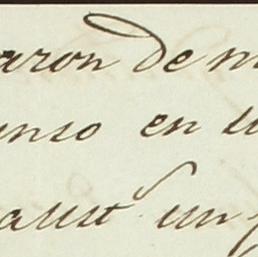 aron de m
unso en u
aust un